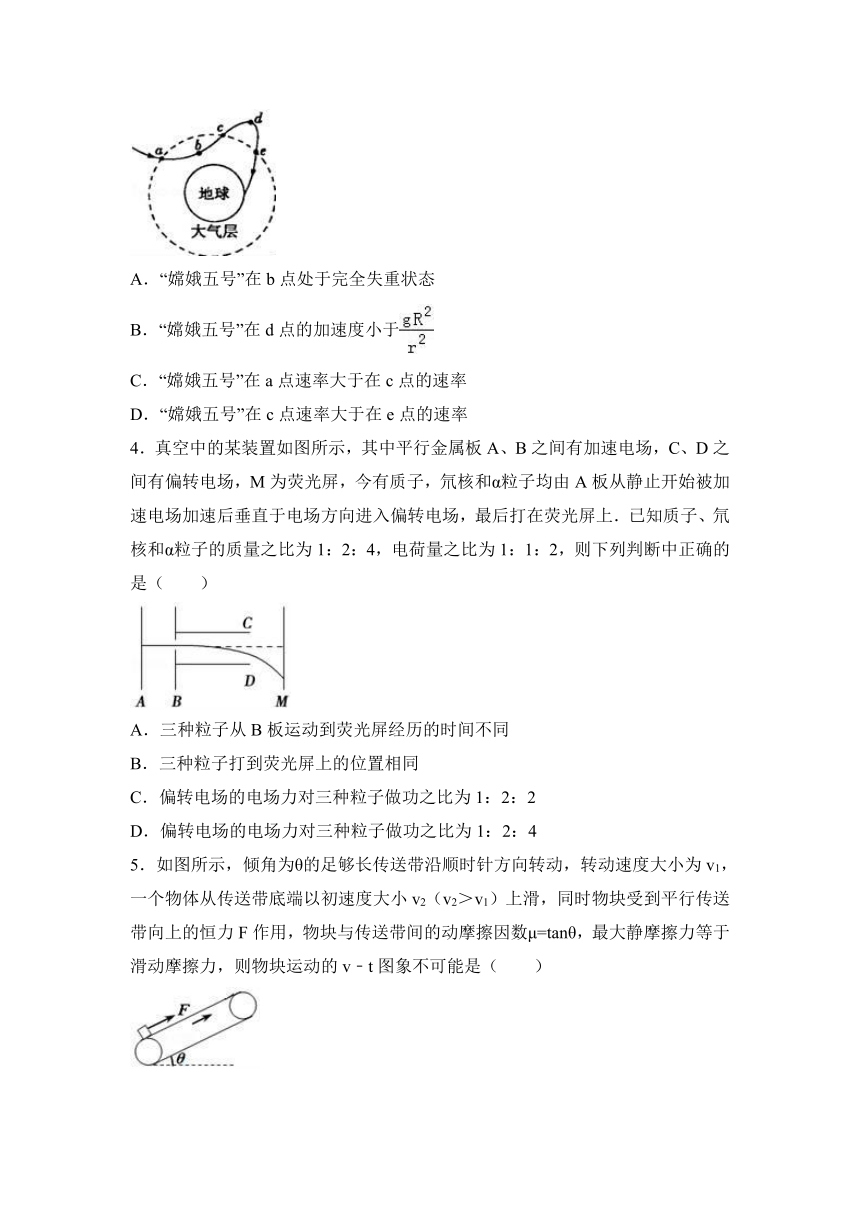 a
b
c
d
e
地球
大气层
A．“嫦娥五号”在 b 点处于完全失重状态
B．“嫦娥五号”在 d 点的加速度小于gR²/r²
C．“嫦娥五号”在 a 点速率大于在 c 点的速率
D．“嫦娥五号”在 c 点速率大于在 e 点的速率
4．真空中的某装置如图所示，其中平行金属板 A、B 之间有加速电场，C、D 之
间有偏转电场，M 为荧光屏，今有质子，氘核和α粒子均由 A 板从静止开始被加
速电场加速后垂直于电场方向进入偏转电场，最后打在荧光屏上．已知质子、氘
核和α粒子的质量之比为 1：2：4，电荷量之比为 1：1：2，则下列判断中正确的
是（　　）
C
D
A B M
A．三种粒子从 B 板运动到荧光屏经历的时间不同
B．三种粒子打到荧光屏上的位置相同
C．偏转电场的电场力对三种粒子做功之比为 1：2：2
D．偏转电场的电场力对三种粒子做功之比为 1：2：4
5．如图所示，倾角为θ的足够长传送带沿顺时针方向转动，转动速度大小为 v₁，
一个物体从传送带底端以初速度大小 v₂（v₂＞v₁）上滑，同时物块受到平行传送
带向上的恒力 F 作用，物块与传送带间的动摩擦因数μ=tanθ，最大静摩擦力等于
滑动摩擦力，则物块运动的 v﹣t 图象不可能是（　　）
F
θ